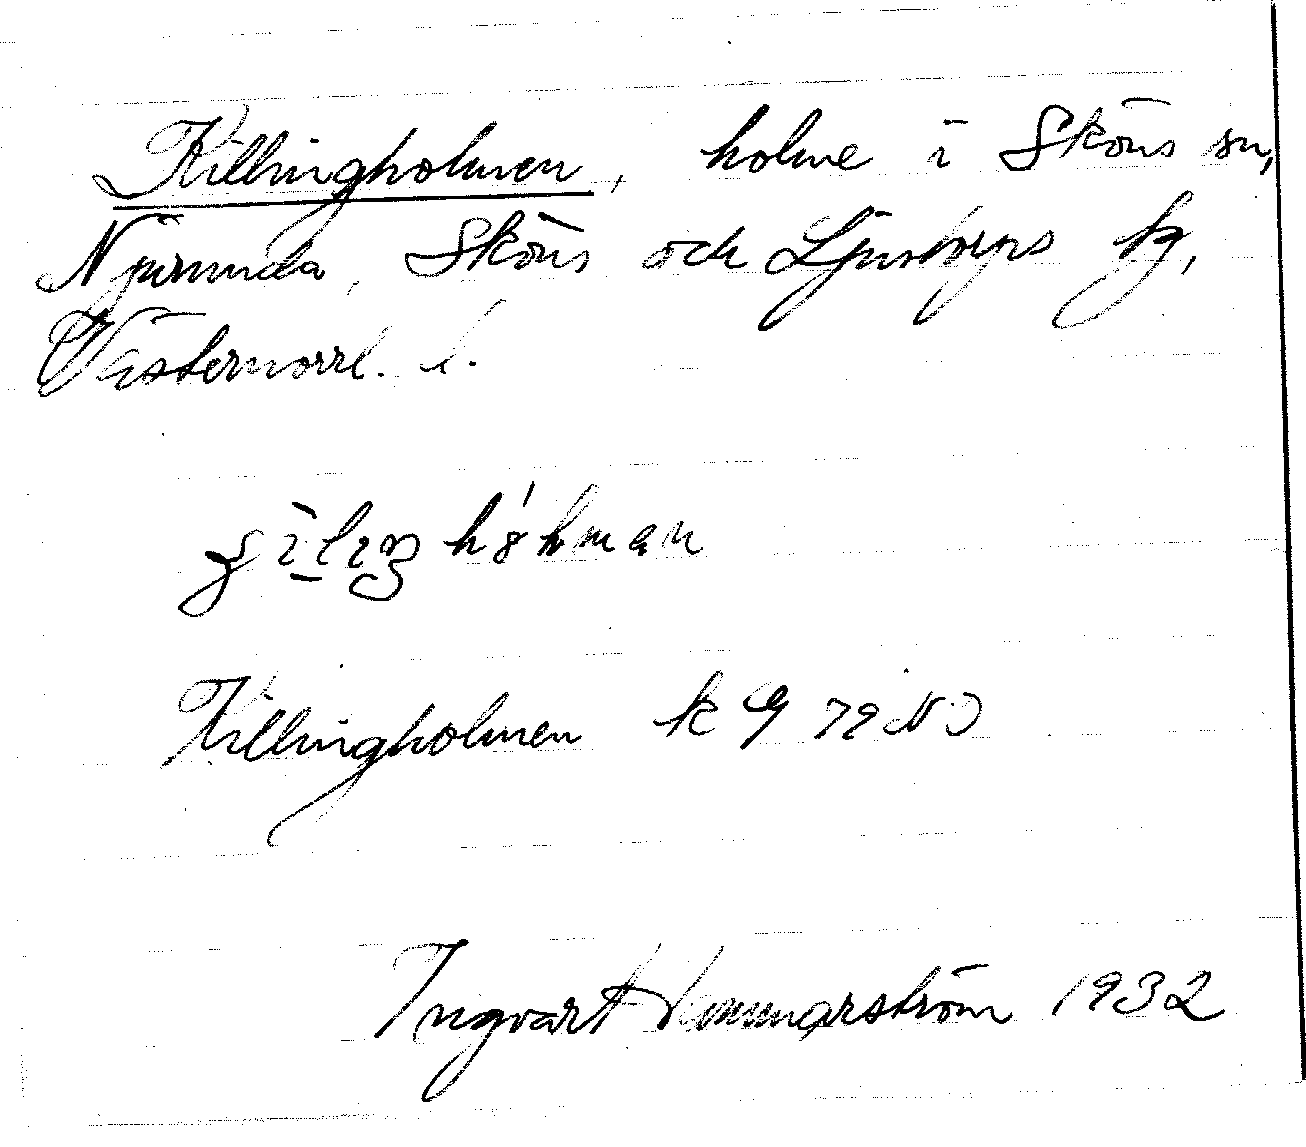 Killingholmen, holme i Sköns sn,
Njurunda, Sköns och Ljustorps tg,
Västernorrl. l.
Killingholmen k 9
Ingvart Hammarström 1932